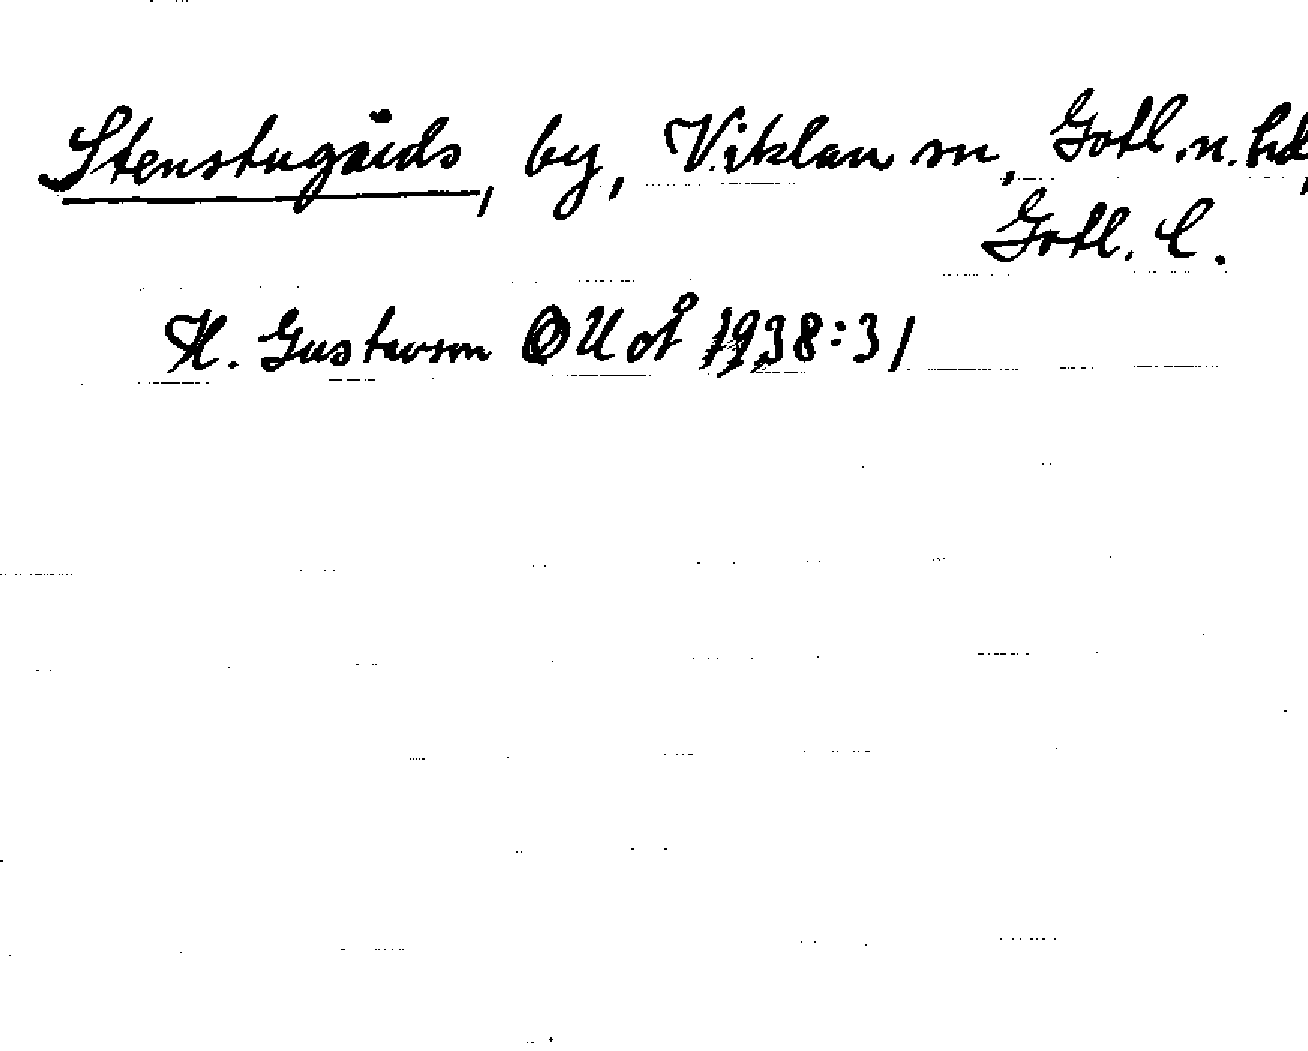 Stenstugårds, by, Viklau sn, Gotl. n. hd,
Gotl. l.
H. Gustavson OUoÅ 1938:31